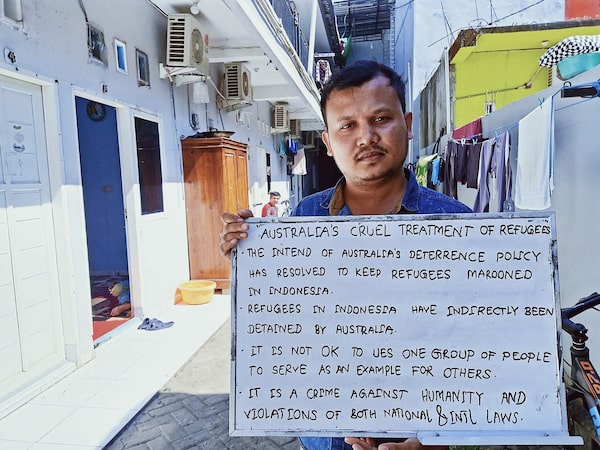 AUSTRALIA'S CRUEL TREATMENT OF REFUGEES
· THE INTEND OF AUSTRALIA'S DETERRENCE POLICY
HAS RESOLVED TO KEEP REFUGEES MAROONED
IN INDONESIA.
· REFUGEES IN INDONESIA HAVE INDIRECTLY BEEN
DETAINED BY AUSTRALIA.
· IT IS NOT OK TO UES ONE GROUP OF PEOPLE
TO SERVE AS AN EXAMPLE FOR OTHERS.
· IT IS A CRIME AGAINST HUMANITY AND
VIOLATIONS OF BOTH NATIONAL & INTL LAWS.